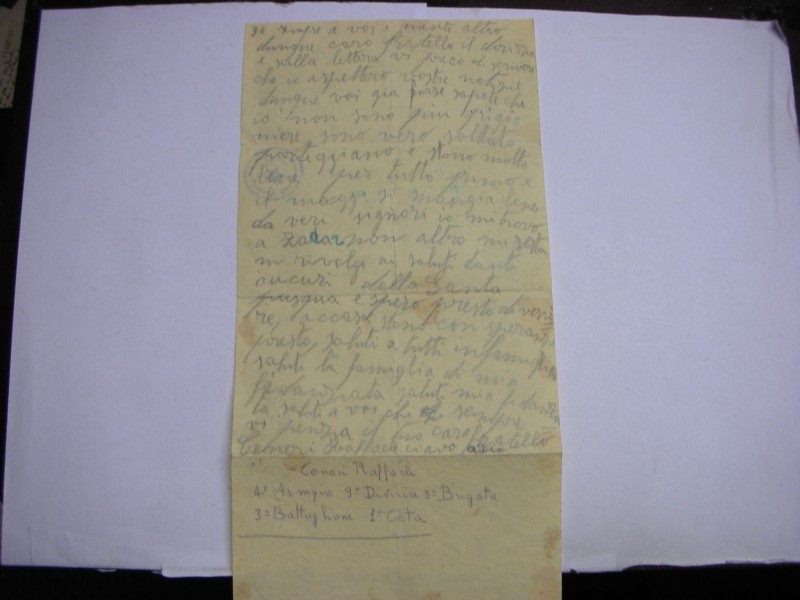 sempre a voi e niente altro
dunque caro fratello il dirizzo
e sulla lettera vi preco di scrivere
che io aspettero vostre notizie
dunque voi gia forse sapete che
io non sono piu prigio
niere sono vero soldato
parteggiano e stono molto
bene per tutto primo e
il mangi si mangia bene
da veri signori io mi trovo
a Zadar non altro mi resta
mi rivolgo ai saluti tanti
aucuri della Santa
pasqua e spero presto di veni
re, accasa stono con speranza
presto, saluti a tutti in famiglia
saluti la famiglia di mia
fidanzata saluti mia fidanza
ta saluti a voi chi sempre
vi penza il tuo caro fratello
Ceneri Raffaele ciavo
Ceneri Raffaele
4ª Armyia 9ª Divisia 3ª Brigata
3ª Battaglione 1ª Ceta